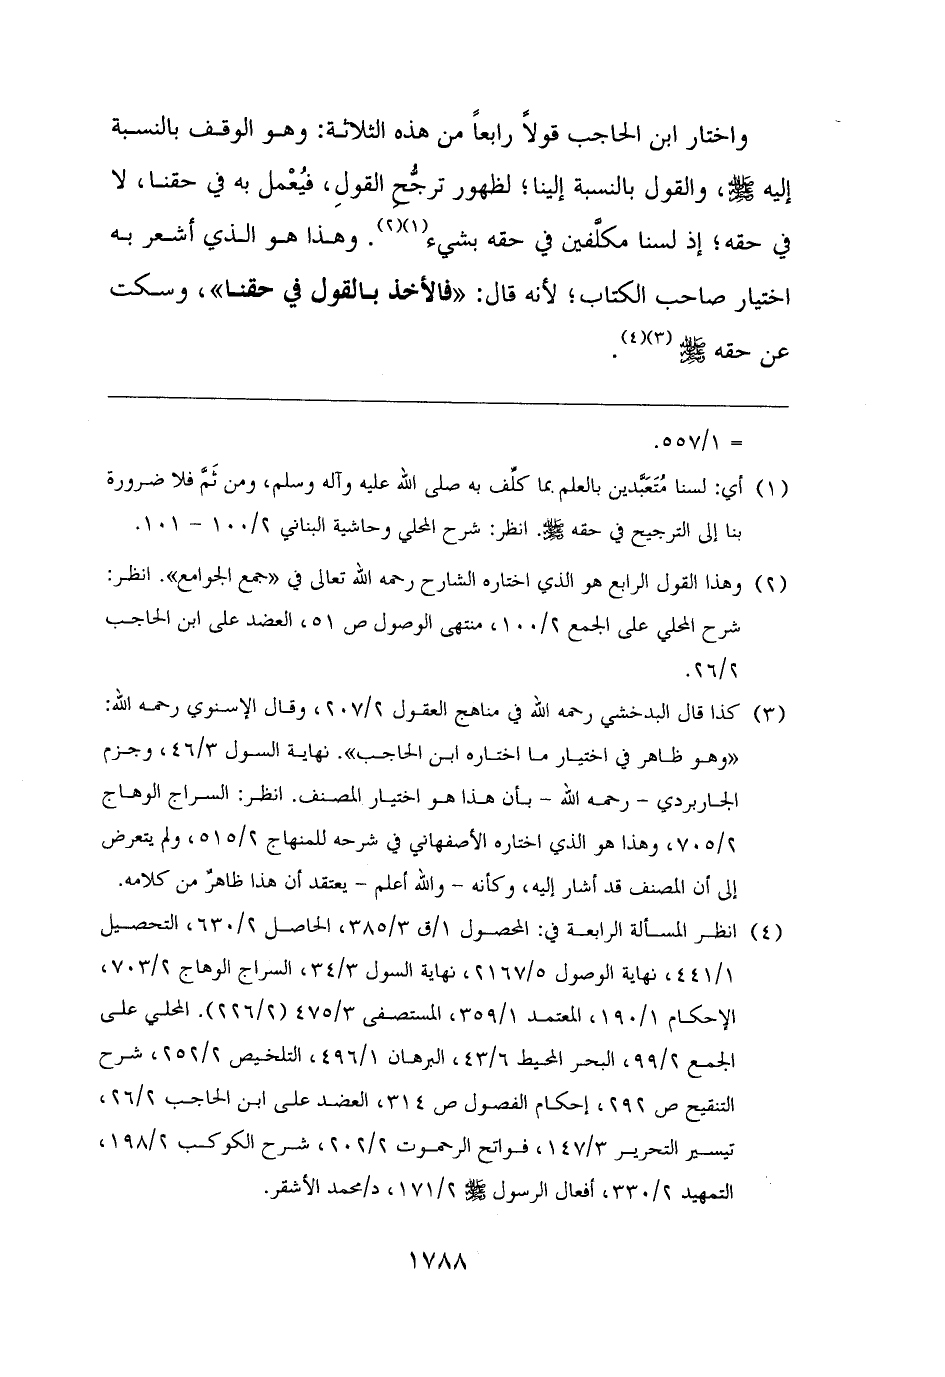 واختار ابن الحاجب قولاً رابعاً من هذه الثلاثة: وهو الوقف بالنسبة
إليه ﷺ، والقول بالنسبة إلينا؛ لظهور ترجُّحِ القولِ، فيُعْمل به في حقنا، لا
في حقه؛ إذ لسنا مكلَّفين في حقه بشيء(١)(٢). وهذا هو الذي أشعر به
اختيار صاحب الكتاب؛ لأنه قال: «فالأخذ بالقول في حقنا»، وسكت
عن حقه ﷺ (٣)(٤).
= ٥٥٧/١.
(١) أي: لسنا مُتَعَبَّدين بالعلم بما كلِّف به صلى الله عليه وآله وسلم، ومن ثَمَّ فلا ضرورة
بنا إلى الترجيح في حقه ﷺ. انظر: شرح المحلي وحاشية البناني ١٠٠/٢ – ١٠١.
(٢) وهذا القول الرابع هو الذي اختاره الشارح رحمه الله تعالى في «جمع الجوامع». انظر:
شرح المحلي على الجمع ١٠٠/٢، منتهى الوصول ص ٥١، العضد على ابن الحاجب
٢٦/٢.
(٣) كذا قال البدخشي رحمه الله في مناهج العقول ٢٠٧/٢، وقال الإسنوي رحمه الله:
«وهو ظاهر في اختيار ما اختاره ابن الحاجب». نهاية السول ٤٦/٣، وجزم
الجاربردي – رحمه الله – بأن هذا هو اختيار المصنف. انظر: السراج الوهاج
٧٠٥/٢، وهذا هو الذي اختاره الأصفهاني في شرحه للمنهاج ٥١٥/٢، ولم يتعرض
إلى أن المصنف قد أشار إليه، وكأنه – والله أعلم – يعتقد أن هذا ظاهرٌ من كلامه.
(٤) انظر المسألة الرابعة في: المحصول ١/ق ٣٨٥/٣، الحاصل ٦٣٠/٢، التحصيل
٤٤١/١، نهاية الوصول ٢١٦٧/٥، نهاية السول ٣٤/٣، السراج الوهاج ٧٠٣/٢،
الإحكام ١٩٠/١، المعتمد ٣٥٩/١، المستصفى ٤٧٥/٣ (٢٢٦/٢). المحلي على
الجمع ٩٩/٢، البحر المحيط ٤٣/٦، البرهان ٤٩٦/١، التلخيص ٢٥٢/٢، شرح
التنقيح ص ٢٩٢، إحكام الفصول ص ٣١٤، العضد على ابن الحاجب ٢٦/٢،
تيسير التحرير ١٤٧/٣، فواتح الرحموت ٢٠٢/٢، شرح الكوكب ١٩٨/٢،
التمهيد ٣٣٠/٢، أفعال الرسول ﷺ ١٧١/٢، د/محمد الأشقر.
١٧٨٨